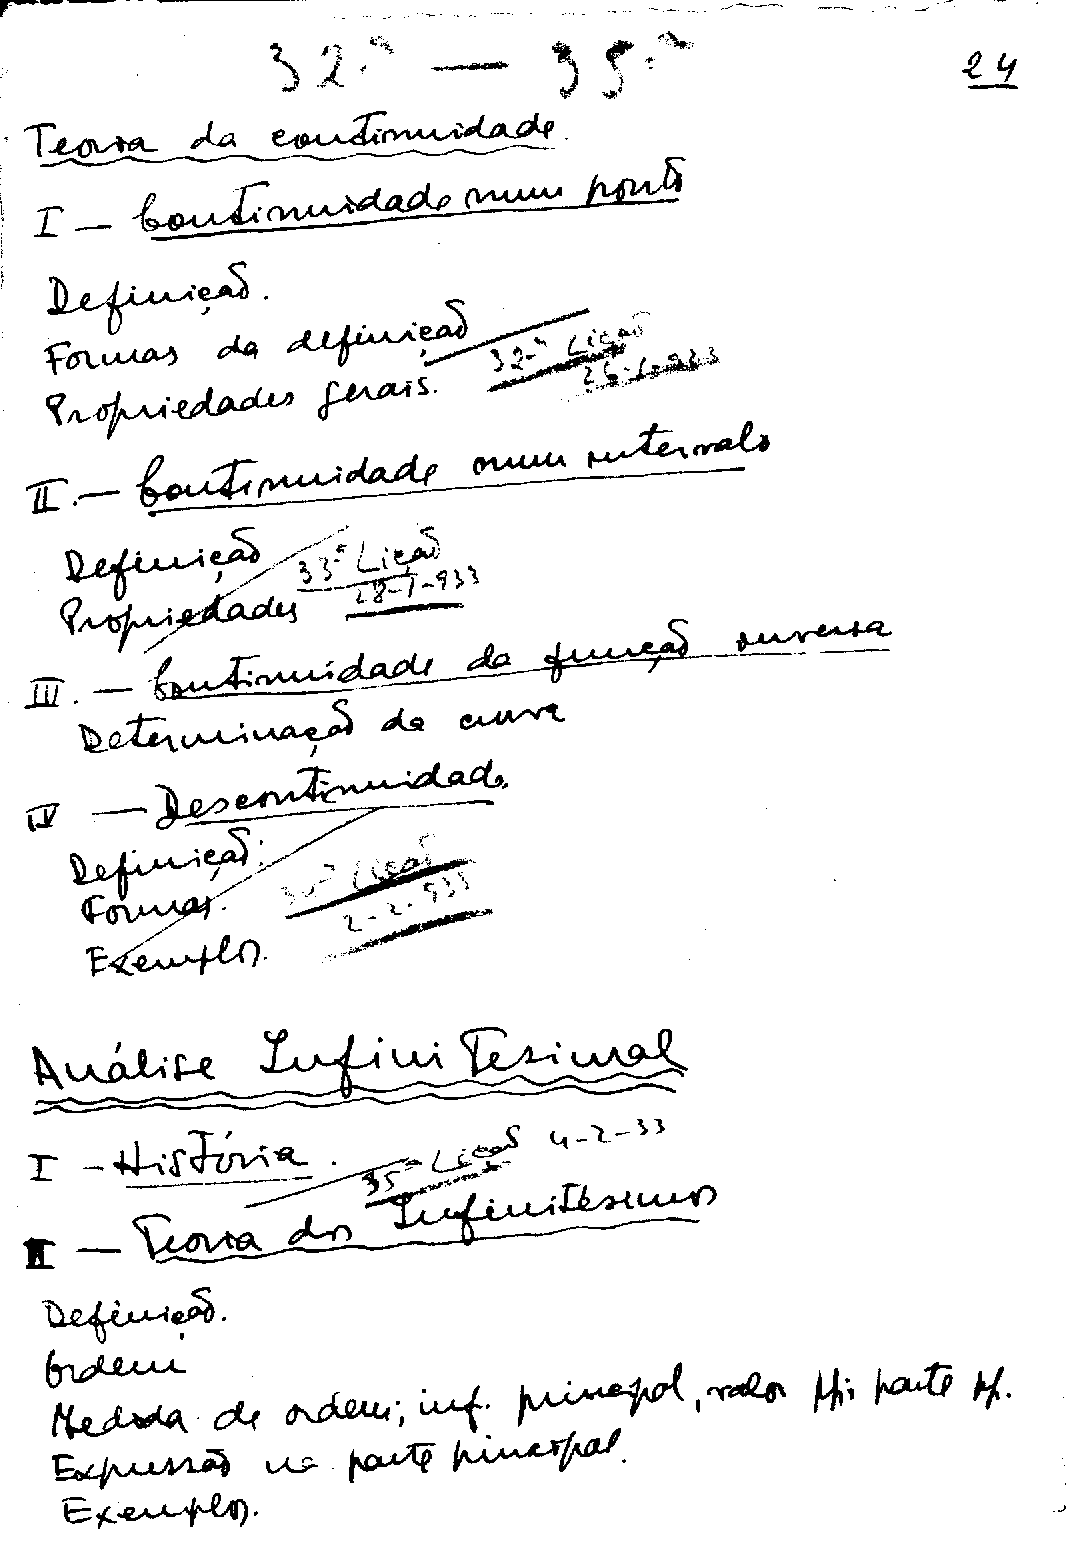 32.ª — 35.ª
24
Teoria da continuidade.
I — Continuidade num ponto
Definição.
Formas da definição
32.ª Lição
26-1-933
Propriedades gerais.
II. — Continuidade num intervalo
Definição
33.ª Lição
28-1-933
Propriedades
III. — Continuidade da função inversa
Determinação da curva
IV — Descontinuidade.
Definição.
Lição
Formas.
2-2-933
Exemplos.
Análise Infinitesimal
I — História.
35.ª Lição 4-2-33
II — Teoria dos Infinitésimos
Definição.
Ordem
Medida da ordem; inf. principal, valor pp; parte pp.
Expressão na parte principal.
Exemplos.